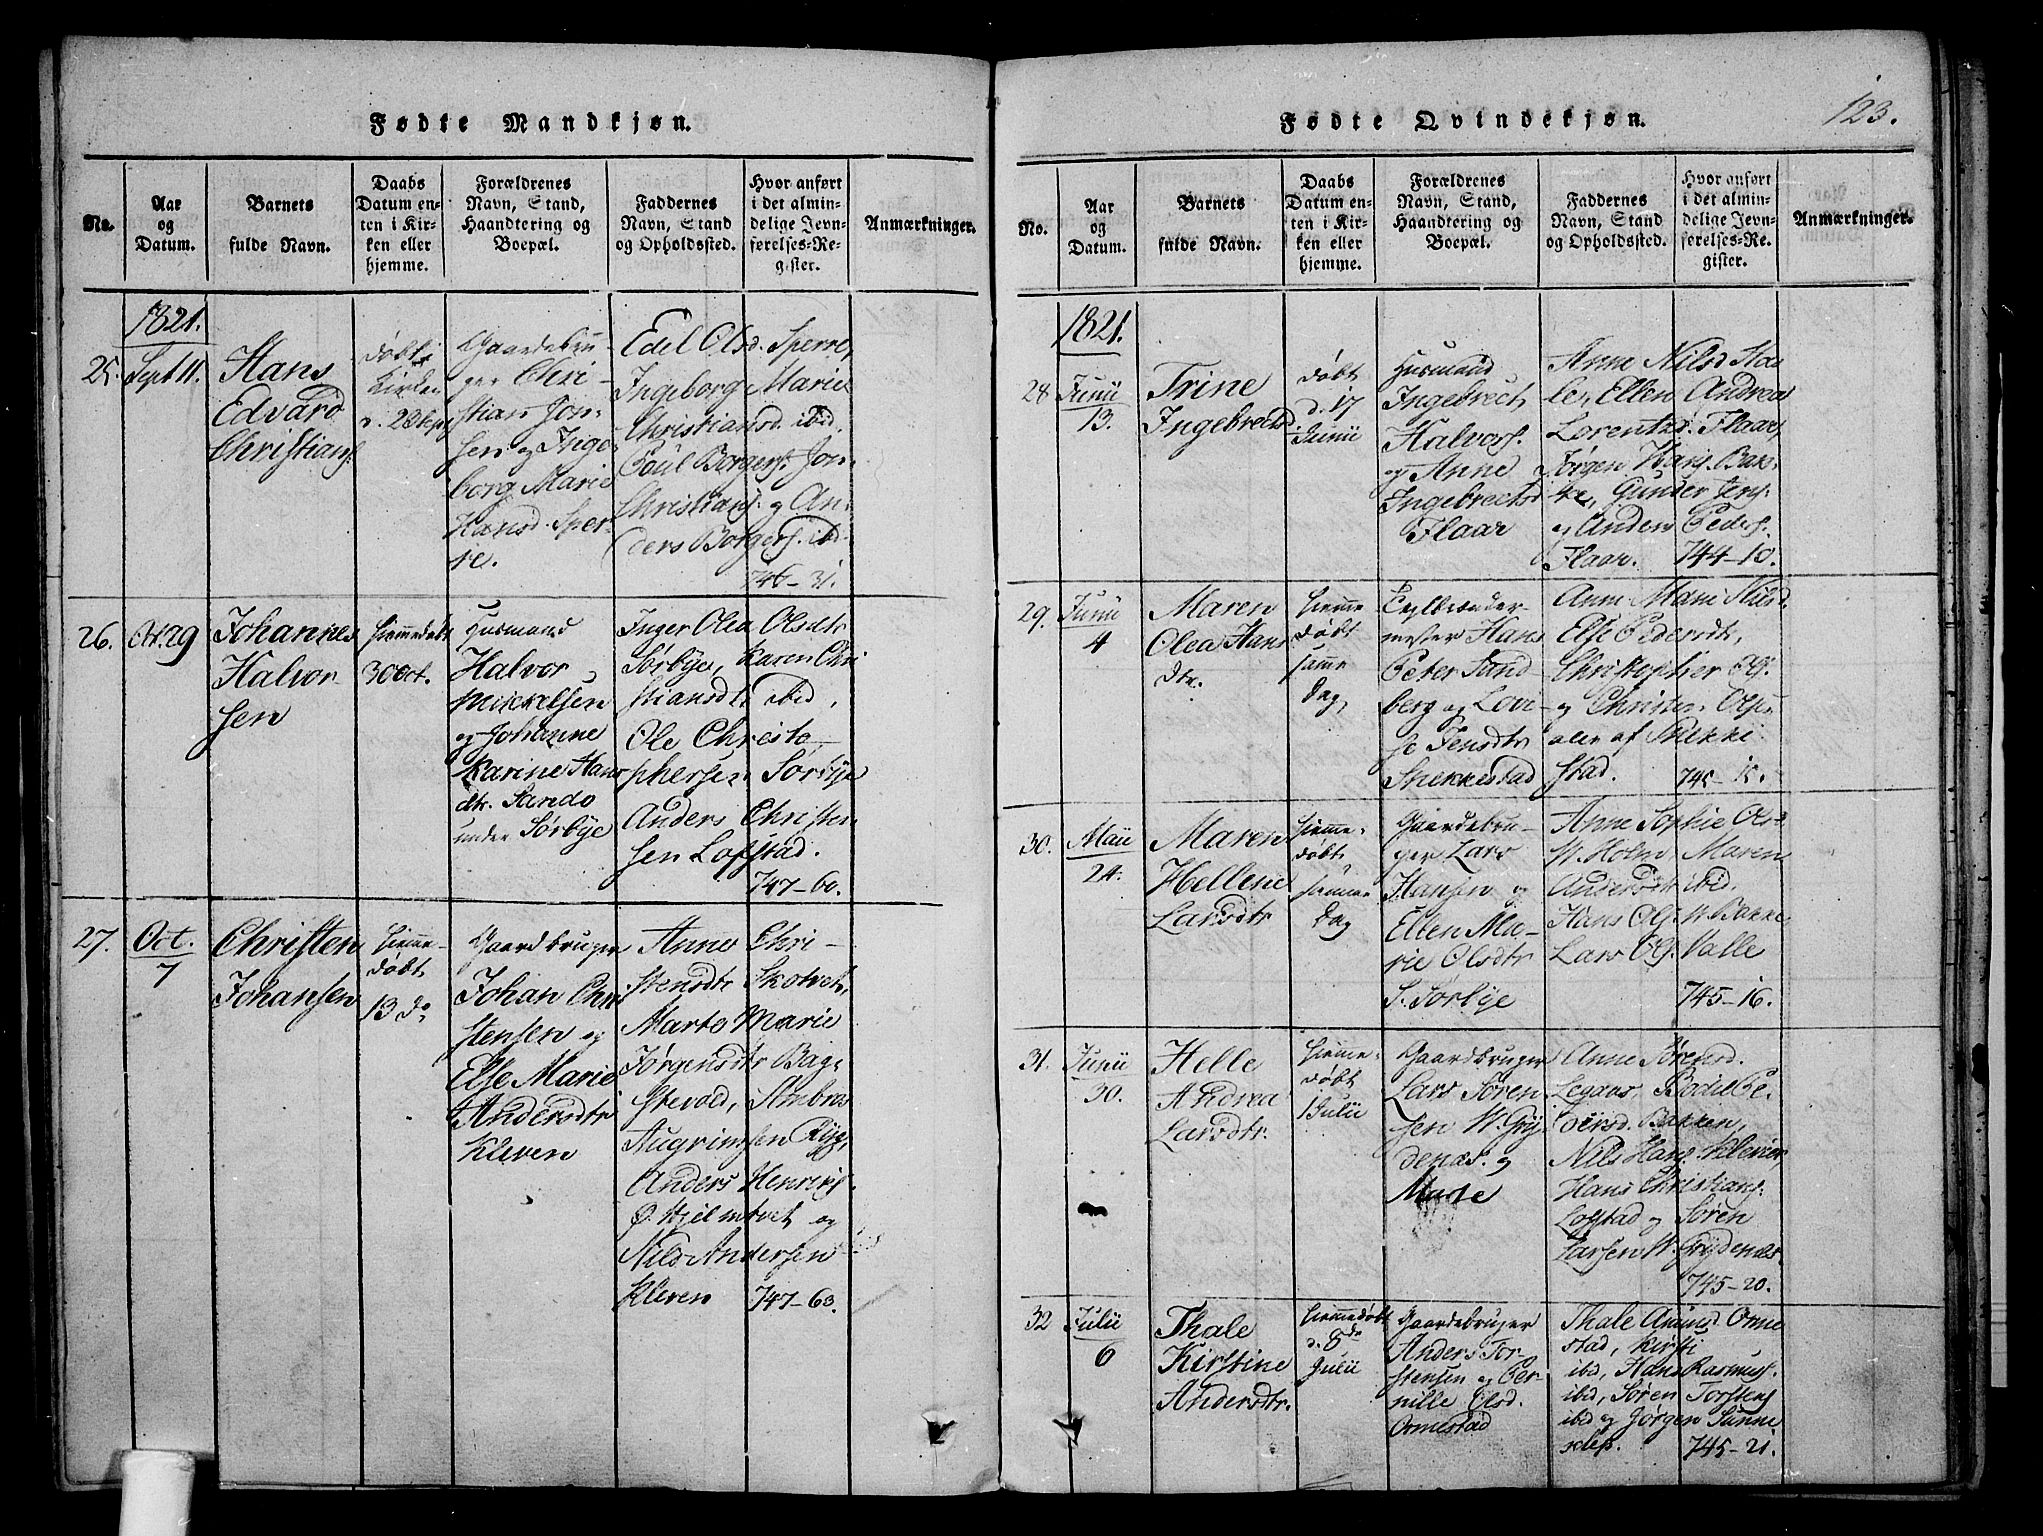 Fødte Mandkjøn.
No.
Aar
og
Datum.
Barnets
fulde Navn.
Daabs
Datum en-
ten i Kir-
ken eller
hjemme.
Forældrenes
Navn, Stand,
Haandtering og
Boepæl.
Faddernes
Navn, Stand
og Opholdssted.
Hvor anført
i det almin-
delige Jevn-
førelses-Re-
gister.
Anmærkninger.
1821.
25.
Sept 11.
Hans
Edvard
Christians.
døbt i
Kirken
Gaardebru-
ger Chri-
stian Jon-
sen og Inge-
borg Marie
Hansd. Sper-
re.
Edel Olsd. Sperre,
Ingeborg Marie
Christiansd. ibid.
Poul Borgers. Jon-
Christians. og An-
ders Borgers. ibd.
746-31.
26.
Oct. 29
Johannes
Halvor
sen
hjemmedøbt
30 Oct.
Husmand
Halvor
Mikkelsen
og Johanne
Karine Hans
dtr. Sando
under Sørbye
Inger Olea Olsdtr
Sørbye, Karen Chri
stiansdtr ibid,
Ole Christo-
phersen Sørbye
Anders Christen-
sen Lofstad.
747-60.
27.
Oct.
7
Christen
Johansen
hjemme-
døbt
13 do
Gaardbruger
Johan Chri
stensen og
Else Marie
Andersdtr
Kleven
Anne Chri-
stensdtr Skotvet,
Marte Marie
Jørgensdtr Bag-
stevold, Ambros
Augrimsen Rise,
Anders Henriks.
Ø. Hjelmtvet og
Nils Andersen
Kleven 747-63.
123.
Fødte Qvindekjøn.
No.
Aar
og
Datum.
Barnets
fulde Navn.
Daabs
Datum en-
ten i Kir-
ken eller
hjemme.
Forældrenes
Navn, Stand,
Haandtering og
Boepæl.
Faddernes
Navn, Stand
og Opholdsted.
Hvor anført
i det almin-
delige Jevn-
førelses-Re-
gister.
Anmærkninger.
1821.
28
Junii
13.
Trine
Ingebrectsd
døbt
d. 17
Junii
Husmand
Ingebrect
Halvors.
og Anne
Ingebrectsd
Flaar
Anne Nilsd Haa
le, Ellen Andrea
Lorentsd. Flaar,
Jørgen Hans. Bak-
ke, Gunder Jens.
og Anders Peders.
Flaar. 744-10.
29.
Junii
4
Maren
Olea Hans
dtr.
hjemme
døbt
samme
Dag,
Teglbrænder-
mester Hans
Peter Sand
berg og Lovi-
se Jensdtr
Snekkestad
Anne Marie Nilsd.
Else Pedersdtr,
Christopher Ols.
og Christen Olsen
alle af Snekke
stad. 745-15.
30.
Maii
24.
Maren
Hellene
Larsdtr
hjemme-
døbt
samme
Dag
Gaardebru-
ger Lars
Hansen og
Ellen Ma-
rie Olsdtr
S. Sørbye
Anne Sophie Ols-
W. Holm, Maren
Andersdtr ibid.
Hans Ols. W. Bakke
Lars Ols. Valle
745-16.
31.
Junii
30.
Helle
Andrea
Larsdtr.
hjemme-
døbt
1 Julii
Gaardbruger
Lars Søren
sen W. Gry
denæs. og
Marte
Anne Sørensd.
Legaas, Bodil Pe-
dersd. Bakken,
Nils Hans. Klever,
Hans Christians.
Lofstad og Søren
Larsen W. Grydenæs.
745-20.
32
Julii
6
Thale
Kirstine
Andersdtr.
hjemmedøbt
d. 8de
Julii
Gaardebruger
Anders Tor-
stensen og Per-
nille Olsd.
Ormestad
Thale Amunsd Orme
stad, Kirsti
ibid, Hans Rasmus.
ibid, Søren Torstens.
ibid og Jørgen Sunne
sdles. 745-21.